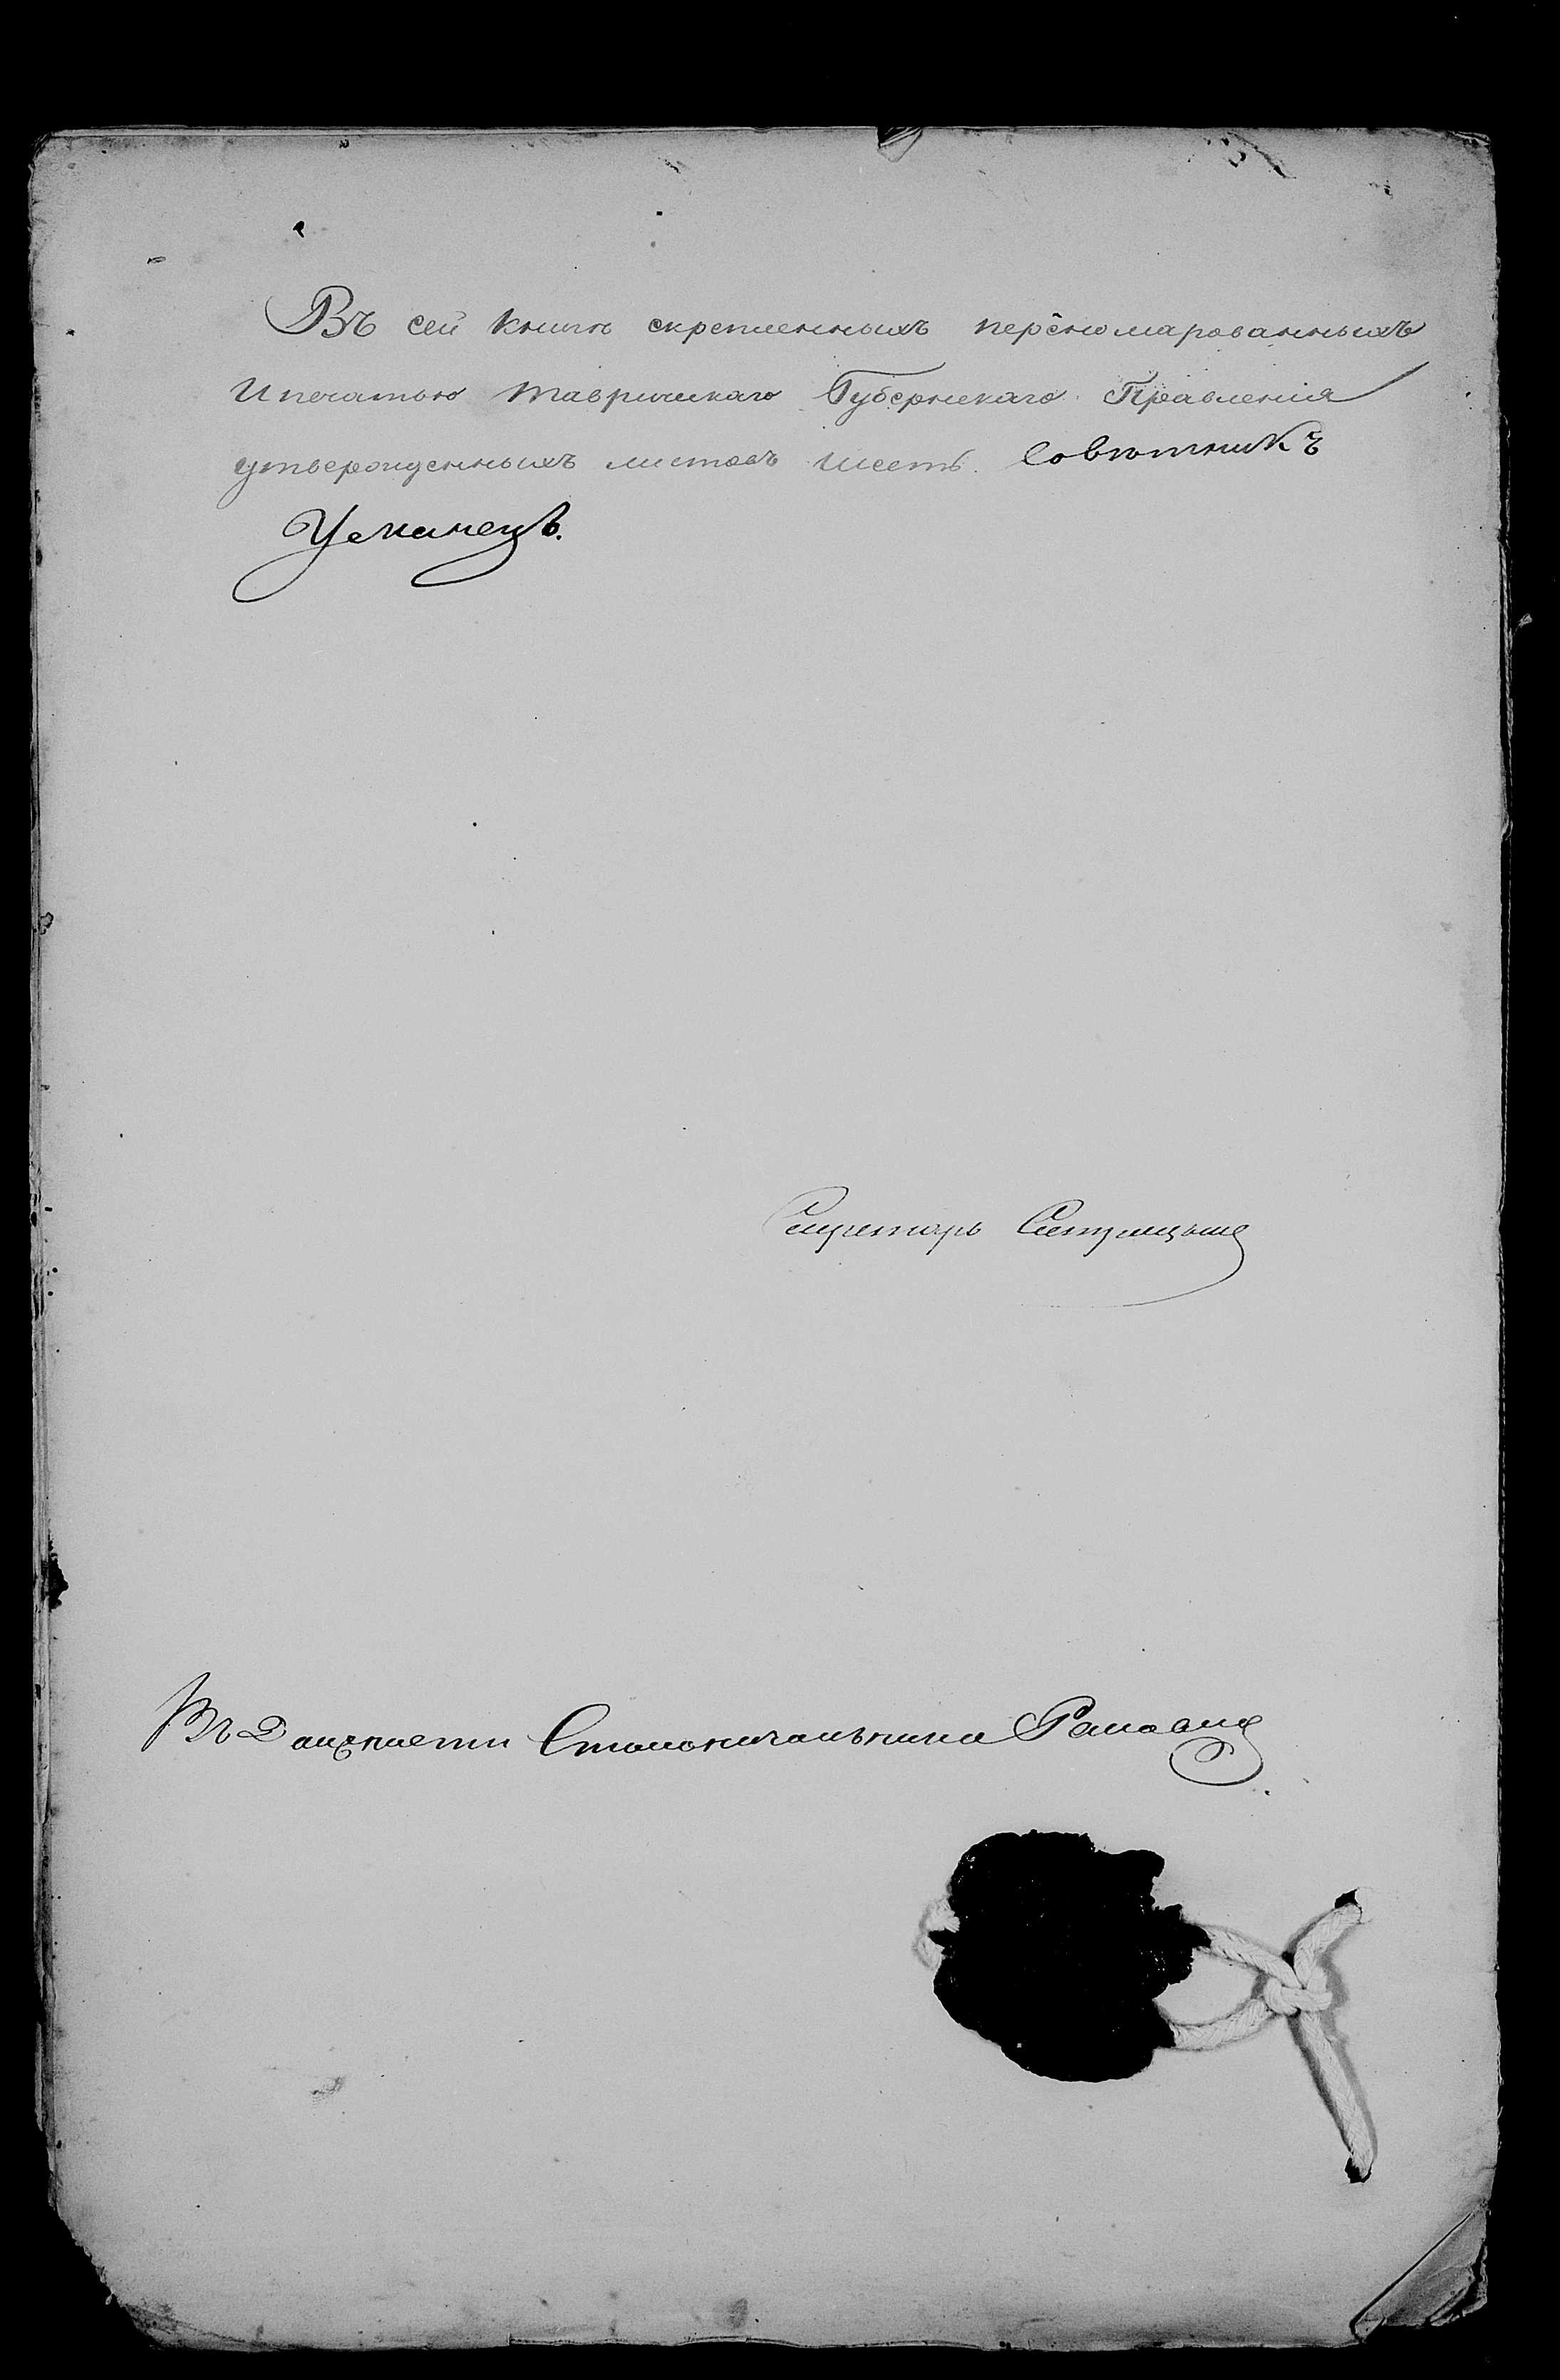 Въ сей книгѣ скрепленныхъ переномарованныхъ
И печатью Таврическаго Губернскаго Правленія
утвержденныхъ листовъ шесть. Совѣтникъ
Уманецъ.
Секретарь
Въ Должности Столоначальника